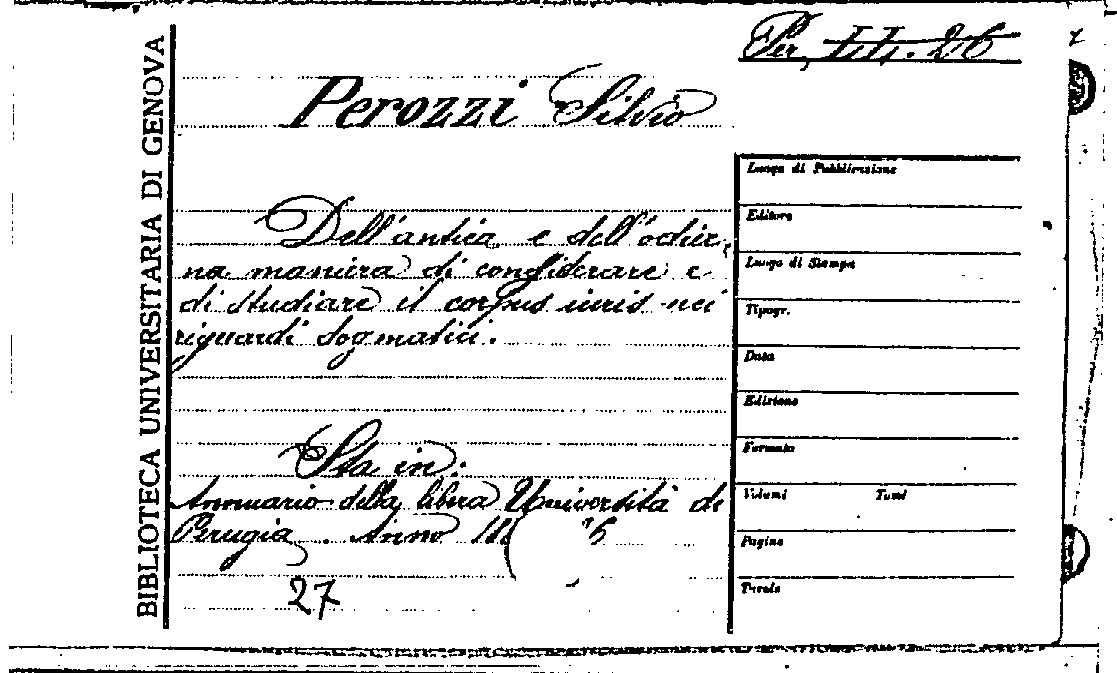 BIBLIOTECA UNIVERSITARIA DI GENOVA
Per, 26
Perozzi Silvio
Dell'antica e dell'odier,
na maniera di considerare e
di studiare il corpus iuris nei
riguardi dogmatici.
Sta in:
Annuario della libera Università di
Perugia. Anno 188 6
27
Luogo di Pubblicazione
Editore
Luogo di Stampa
Tipogr.
Data
Edizione
Formato
Volumi Tomi
Pagine
Tavole